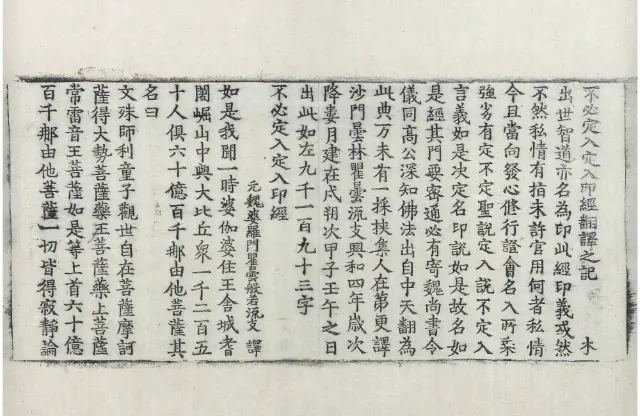 不必定入定入印經翻譯之記 木
出世智道亦名為印此經印義或然
不然私情有指未許官用何者私情
今且當向發心修行證會名入所乘
強劣有定不定聖說定入說不定入
言義如是決定名印說如是故名如
是經其門要密通必有寄魏尚書令
儀同高公深知佛法出自中天翻為
此典万未有一採挾集人在第更譯
沙門曇林瞿曇流支興和四年歲次
降婁月建在戌朔次甲子壬午之日
出此如左九千一百九十三字
不必定入定入印經
元魏婆羅門瞿曇般若流支 譯
如是我聞一時婆伽婆住王舍城耆
闍崛山中與大比丘衆一千二百五
十人俱六十億百千那由他菩薩其
名曰
文殊師利童子觀世自在菩薩摩訶
薩得大勢菩薩藥王菩薩藥上菩薩
常雷音王菩薩如是等上首六十億
百千那由他菩薩一切皆得寂靜論